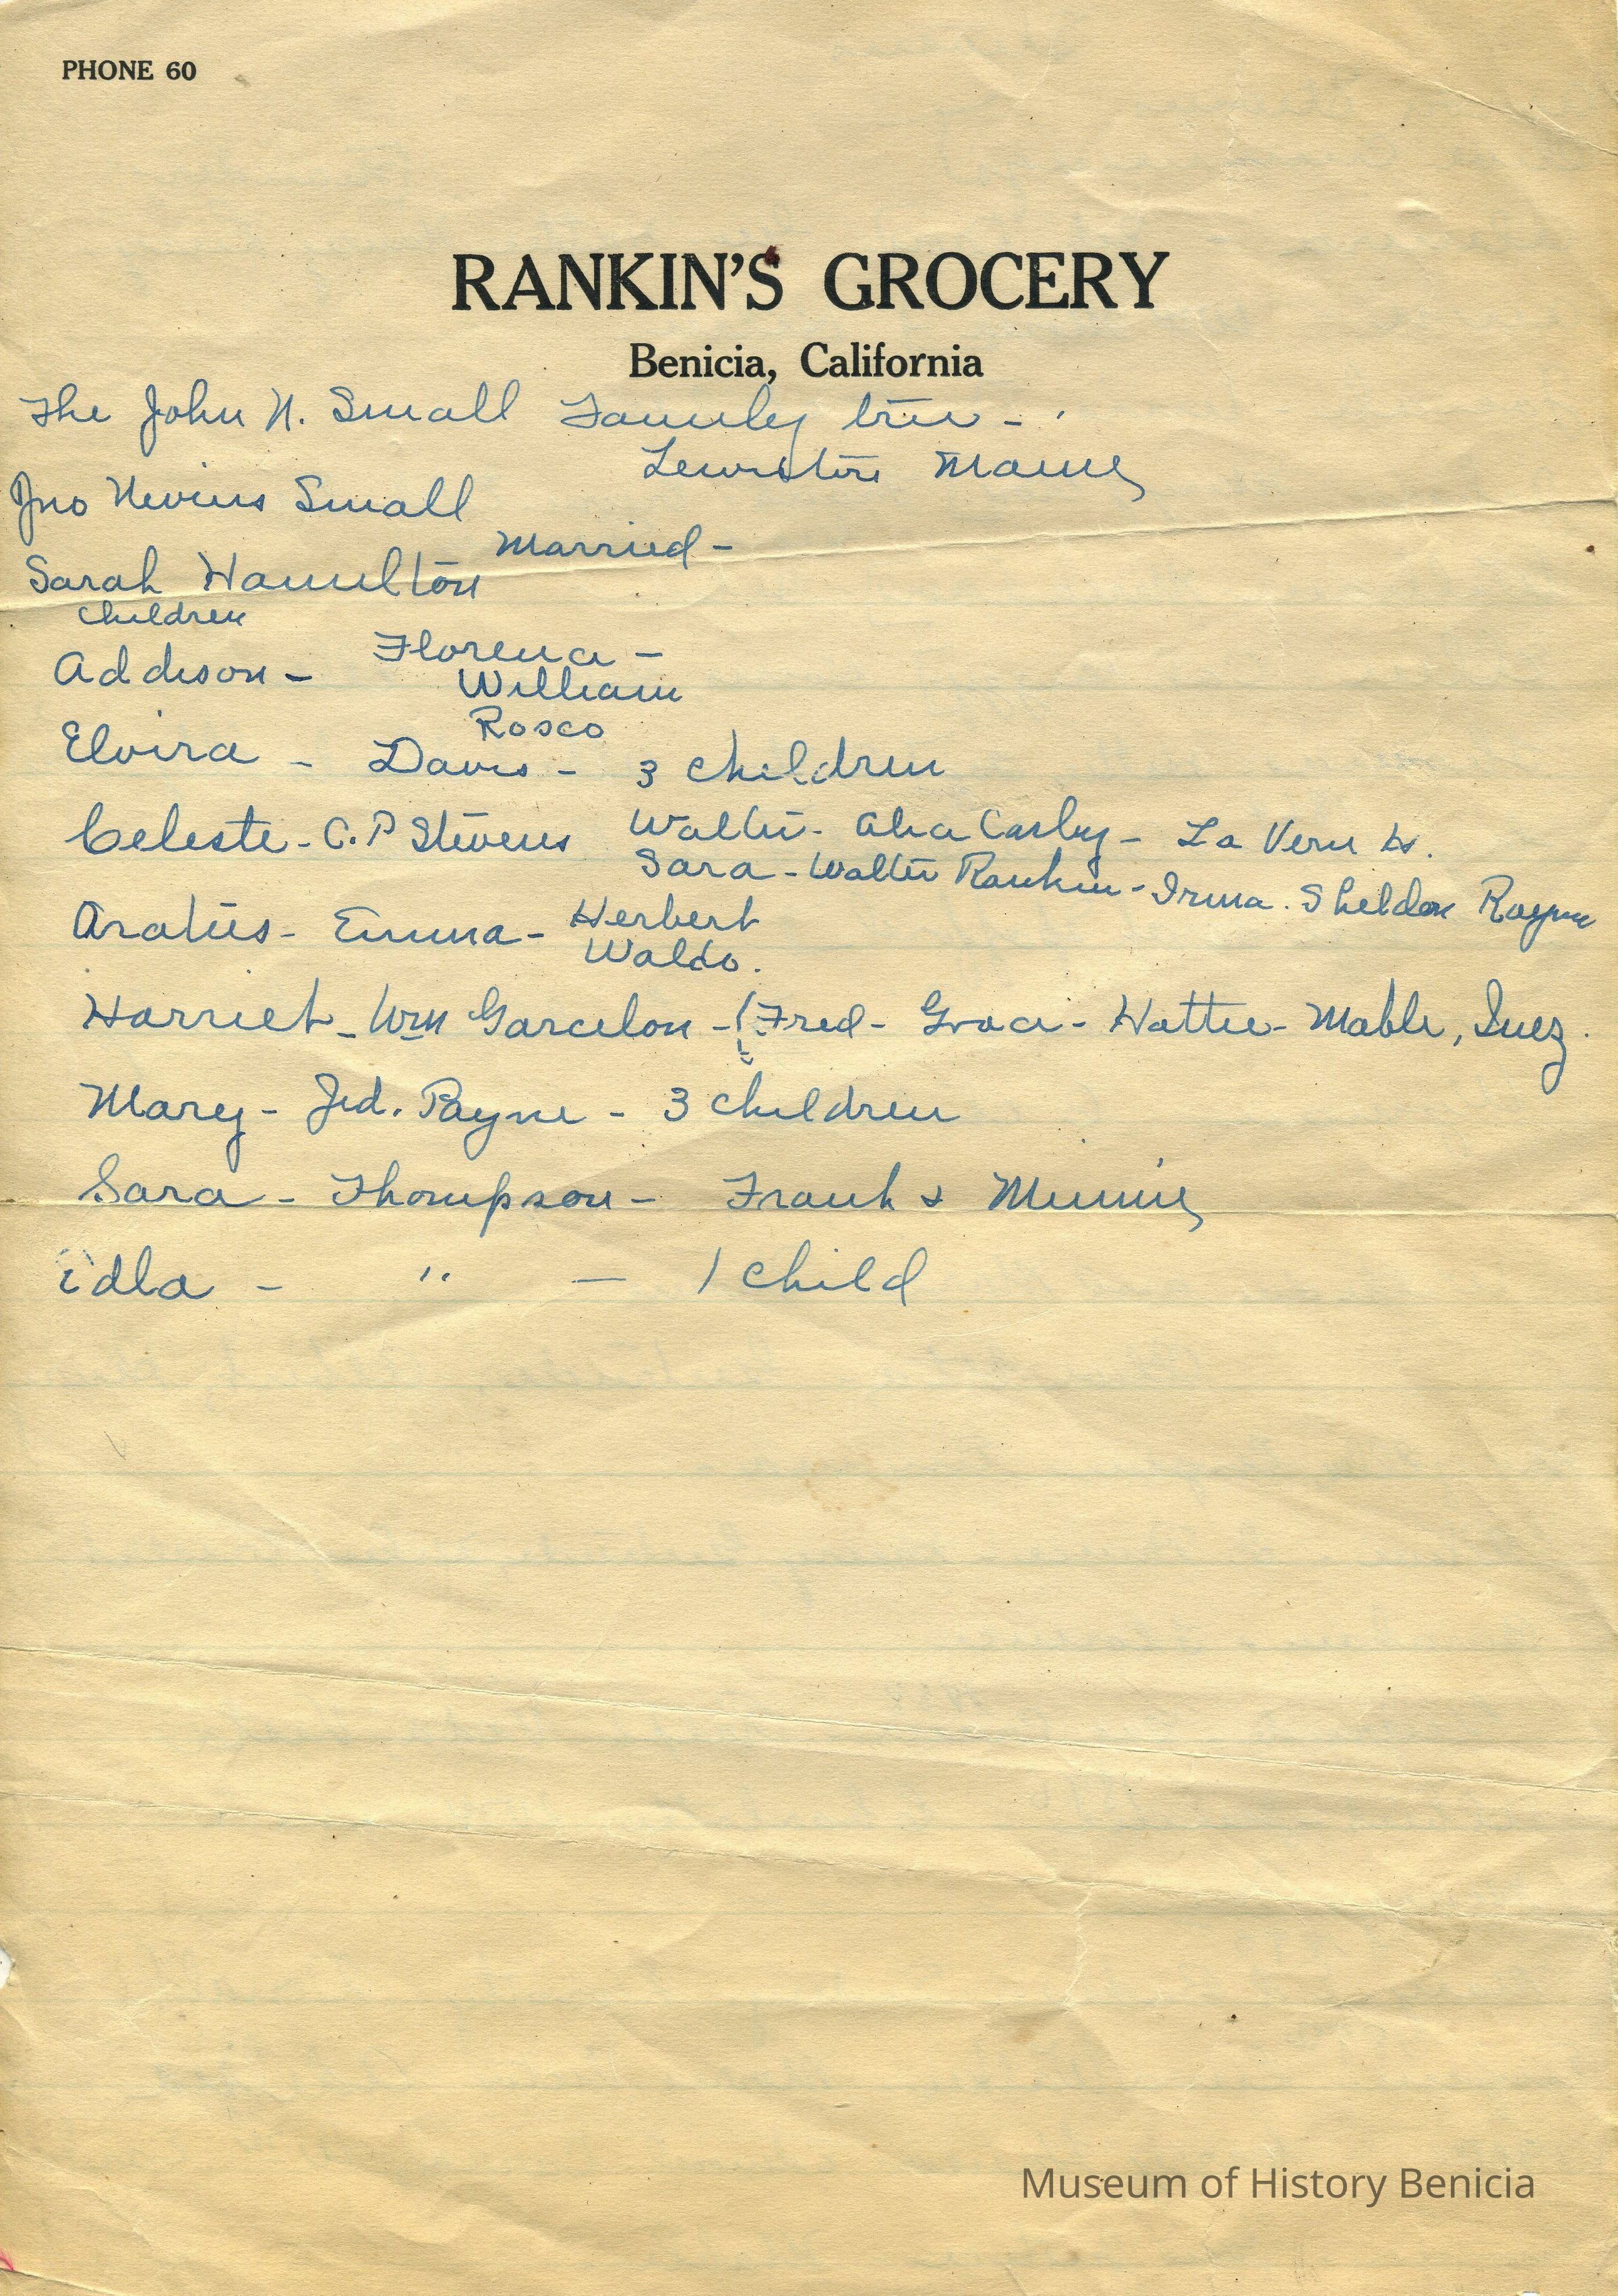 PHONE 60
RANKIN'S GROCERY
Benicia, California
The John N. Small Family tree -
Lewiston Maine
Jno Nevins Small
Married -
Sarah Hamilton
Children
Addison - Florence -
William
Rosco
Elvira - Davis - 3 children
Celeste - C. P Stevens Walter - Carley - La Vern
Sara - Walter Rankin - Irma. Sheldon
Aratus - Emma - Herbert
Waldo.
Harriet - Wm Garcelon - (Fred - Grace - Hattie - Mable, Inez.
Mary - Jed. Payne - 3 children
Sara - Thompson - Frank & Minnie
idla - " - 1 child
Museum of History Benicia